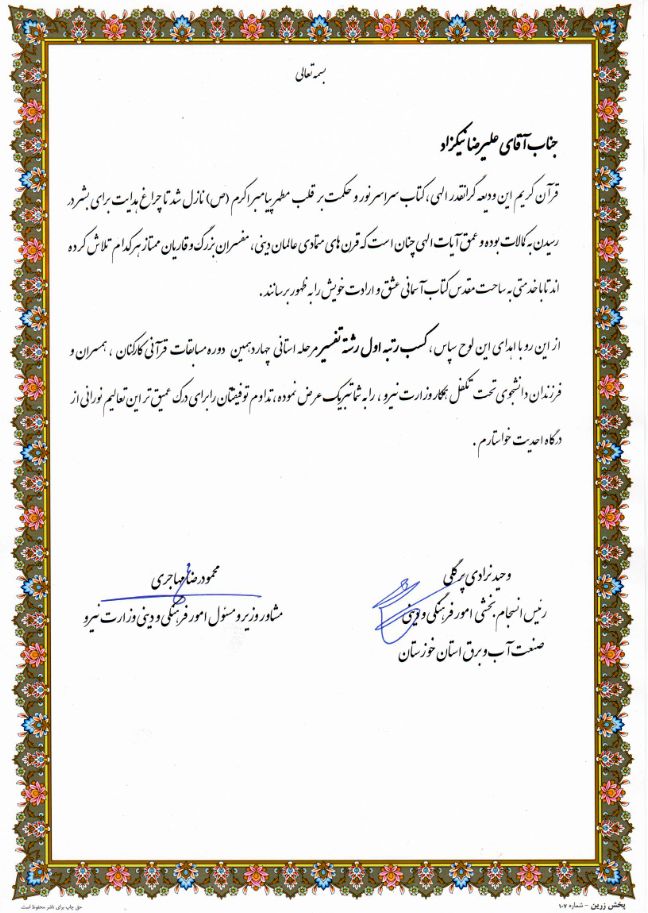 بسمه تعالی
جناب آقای علیرضا نیکزاد
قرآن کریم این ودیعه گرانقدر الهی، کتاب سراسر نور و حکمت بر قلب مطهر پیامبر اکرم (ص) نازل شد تا چراغ هدایت برای بشر در
رسیدن به کمالات بوده و عمق آیات الهی چنان است که قرن های متمادی عالمان دینی، مفسران بزرگ و قاریان ممتاز هر کدام تلاش کرده
اند تا با خدمتی به ساحت مقدس کتاب آسمانی عشق و ارادت خویش را به ظهور برسانند.
از این رو با اهدای این لوح سپاس، کسب رتبه اول رشته تفسیر مرحله استانی چهاردهمین دوره مسابقات قرآنی کارکنان، همسران و
فرزندان دانشجوی تحت تکفل همکار وزارت نیرو، را به شما تبریک عرض نموده، تداوم توفیقتان را برای درک عمیق تر این تعالیم نورانی از
درگاه احدیت خواستارم.
وحید نرادی پرگلی
رئیس انسجام بخشی امور فرهنگی و دینی
صنعت آب و برق استان خوزستان
محمودرضا مهاجری
مشاور وزیر و مسئول امور فرهنگی و دینی وزارت نیرو
پخش زرین - شماره ۱۰۲
حق چاپ برای ناشر محفوظ است